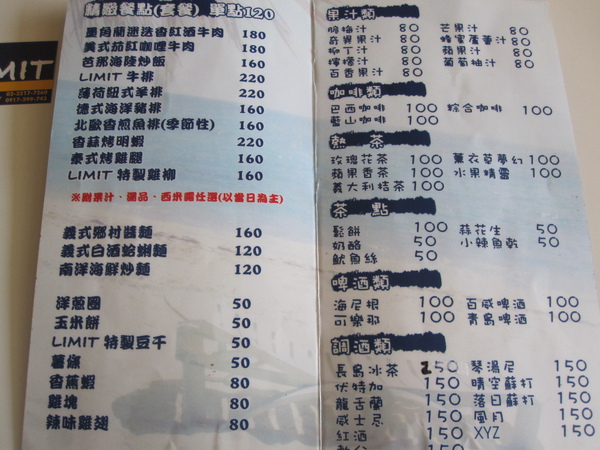 MIT
精緻餐點(套餐) 單點120
墨角蘭迷迭香紅酒牛肉 180
美式茄紅咖哩牛肉 180
芭那海陸炒飯 160
LIMIT 牛排 220
薄荷紐式羊排 220
德式海洋豬排 160
北歐香煎魚排(季節性) 160
香蒜烤明蝦 220
泰式烤雞腿 160
LIMIT 特製雞柳 160
※附果汁、湯品、西米露任選(以當日為主)
義式鄉村醬麵 160
義式白酒蛤蜊麵 120
南洋海鮮炒麵 120
洋蔥圈 50
玉米餅 50
LIMIT 特製豆干 50
薯條 50
香蕉蝦 80
雞塊 80
辣味雞翅 80
果汁類
酸梅汁 80 芒果汁 80
奇異果汁 80 蜂蜜蘆薈汁 80
柳丁汁 80 蘋果汁 80
檸檬汁 80 葡萄柚汁 80
百香果汁 80
咖啡類
巴西咖啡 100 綜合咖啡 100
藍山咖啡 100
熱 茶
玫瑰花茶 100 薰衣草夢幻 100
蘋果香茶 100 水果精靈 100
義大利桔茶 100
茶 點
鬆餅 100 蒜花生 50
奶酪 50 小辣魚乾 50
魷魚絲 50
啤酒類
海尼根 100 百威啤酒 100
可樂那 100 青島啤酒 100
調酒類
長島冰茶 250 琴湯尼 150
伏特加 150 晴空蘇打 150
龍舌蘭 150 落日蘇打 150
威士忌 150 風月 150
紅酒 150 XYZ 150